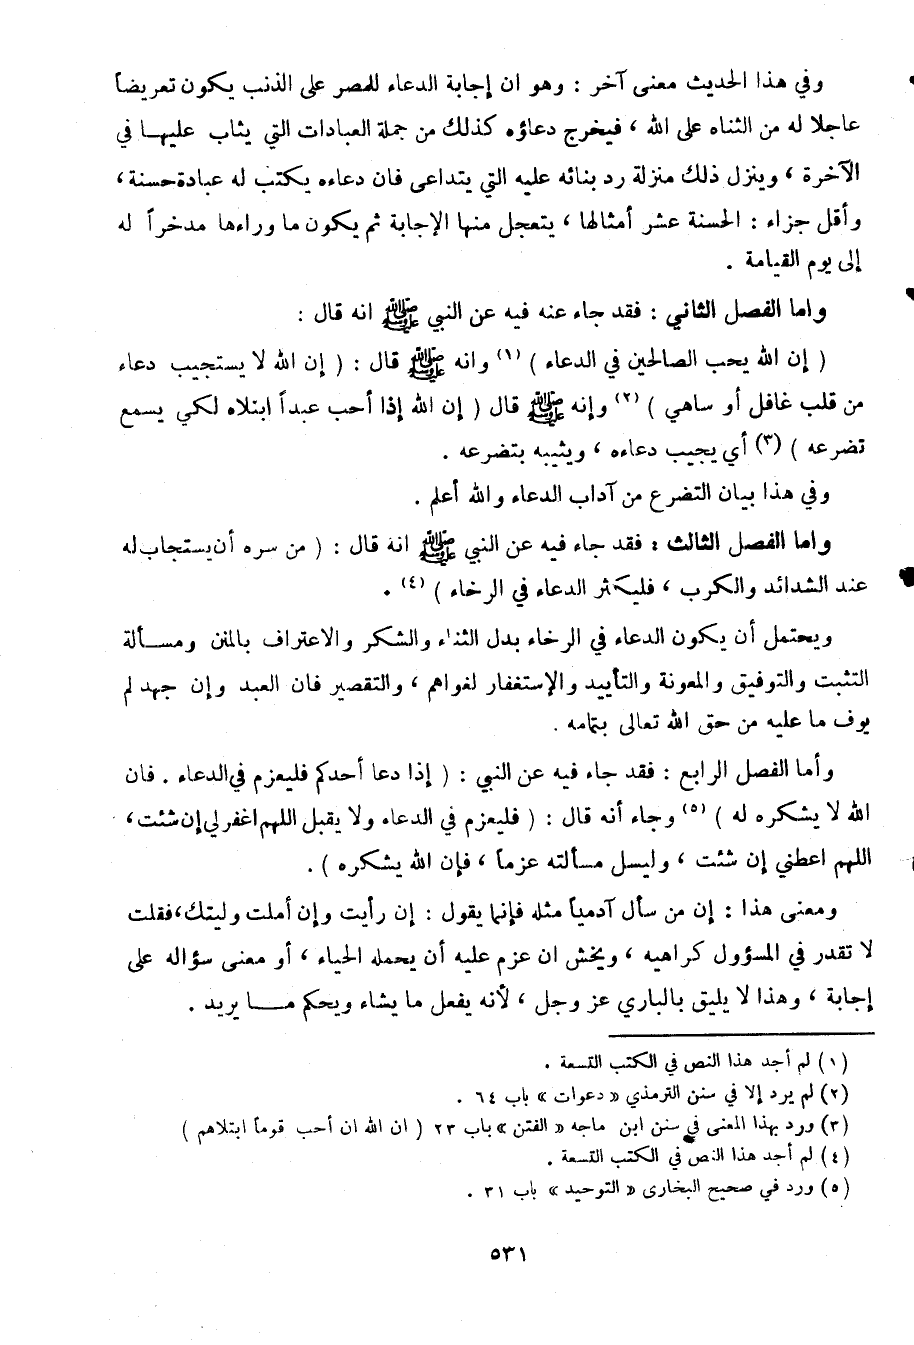 وفي هذا الحديث معنى آخر : وهو ان إجابة الدعاء للمصر على الذنب يكون تعريضاً
عاجلا له من الثناه على الله ، فيخرج دعاؤه كذلك من جملة العبادات التي يثاب عليهـا في
الآخرة ، وينزل ذلك منزلة رد بنائه عليه التي يتداعى فان دعاءه يكتب له عبادة حسنة ،
وأقل جزاء : الحسنة عشر أمثالها ، يتعجل منها الإجابة ثم يكون ما وراءها مدخراً له
إلى يوم القيامة .
واما الفصل الثاني : فقد جاء عنه فيه عن النبي ﷺ انه قال :
( إن الله يحب الصالحين في الدعاء ) (١) وانه ﷺ قال : ( إن الله لا يستجيب دعاء
من قلب غافل أو ساهي ) (٢) وإنه ﷺ قال ( إن الله إذا أحب عبداً ابتلاه لكي يسمع
تضرعه ) (٣) أي يجيب دعاءه ، ويثيبه بتضرعه .
وفي هذا بيان التضرع من آداب الدعاء والله أعلم .
واما الفصل الثالث : فقد جاء فيه عن النبي ﷺ انه قال : ( من سره أن يستجاب له
عند الشدائد والكرب ، فليكثر الدعاء في الرخاء ) (٤) .
ويحتمل أن يكون الدعاء في الرخاء بدل الثناء والشكر والاعتراف بالمنن ومســألة
التثبت والتوفيق والمعونة والتأييد والإستغفار لغواهم ، والتقصير فان العبد وإن جهد لم
يوف ما عليه من حق الله تعالى بتمامه .
وأما الفصل الرابع : فقد جاء فيه عن النبي : ( إذا دعا أحدكم فليعزم في الدعاء . فان
الله لا يشكره له ) (٥) وجاء أنه قال : ( فليعزم في الدعاء ولا يقبل اللهم اغفر لي إن شئت ،
اللهم اعطني إن شئت ، وليسل مسألته عزماً ، فإن الله يشكره ) .
ومعنى هذا : إن من سأل آدمياً مثله فإنما يقول : إن رأيت وإن أملت وليتك ، فقلت
لا تقدر في المسؤول كراهيه ، ويخش ان عزم عليه أن يحمله الحياء ، أو معنى سؤاله على
إجابة ، وهذا لا يليق بالباري عز وجل ، لأنه يفعل ما يشاء ويحكم مــا يريد .
(١) لم أجد هذا النص في الكتب التسعة .
(٢) لم يرد إلا في سنن الترمذي « دعوات » باب ٦٤ .
(٣) ورد بهذا المعنى في سنن ابن ماجه « الفتن » باب ٢٣ ( ان الله ان أحب قوماً ابتلاهم )
(٤) لم أجد هذا النص في الكتب التسعة .
(٥) ورد في صحيح البخارى « التوحيد » باب ٣١ .
٥٣١